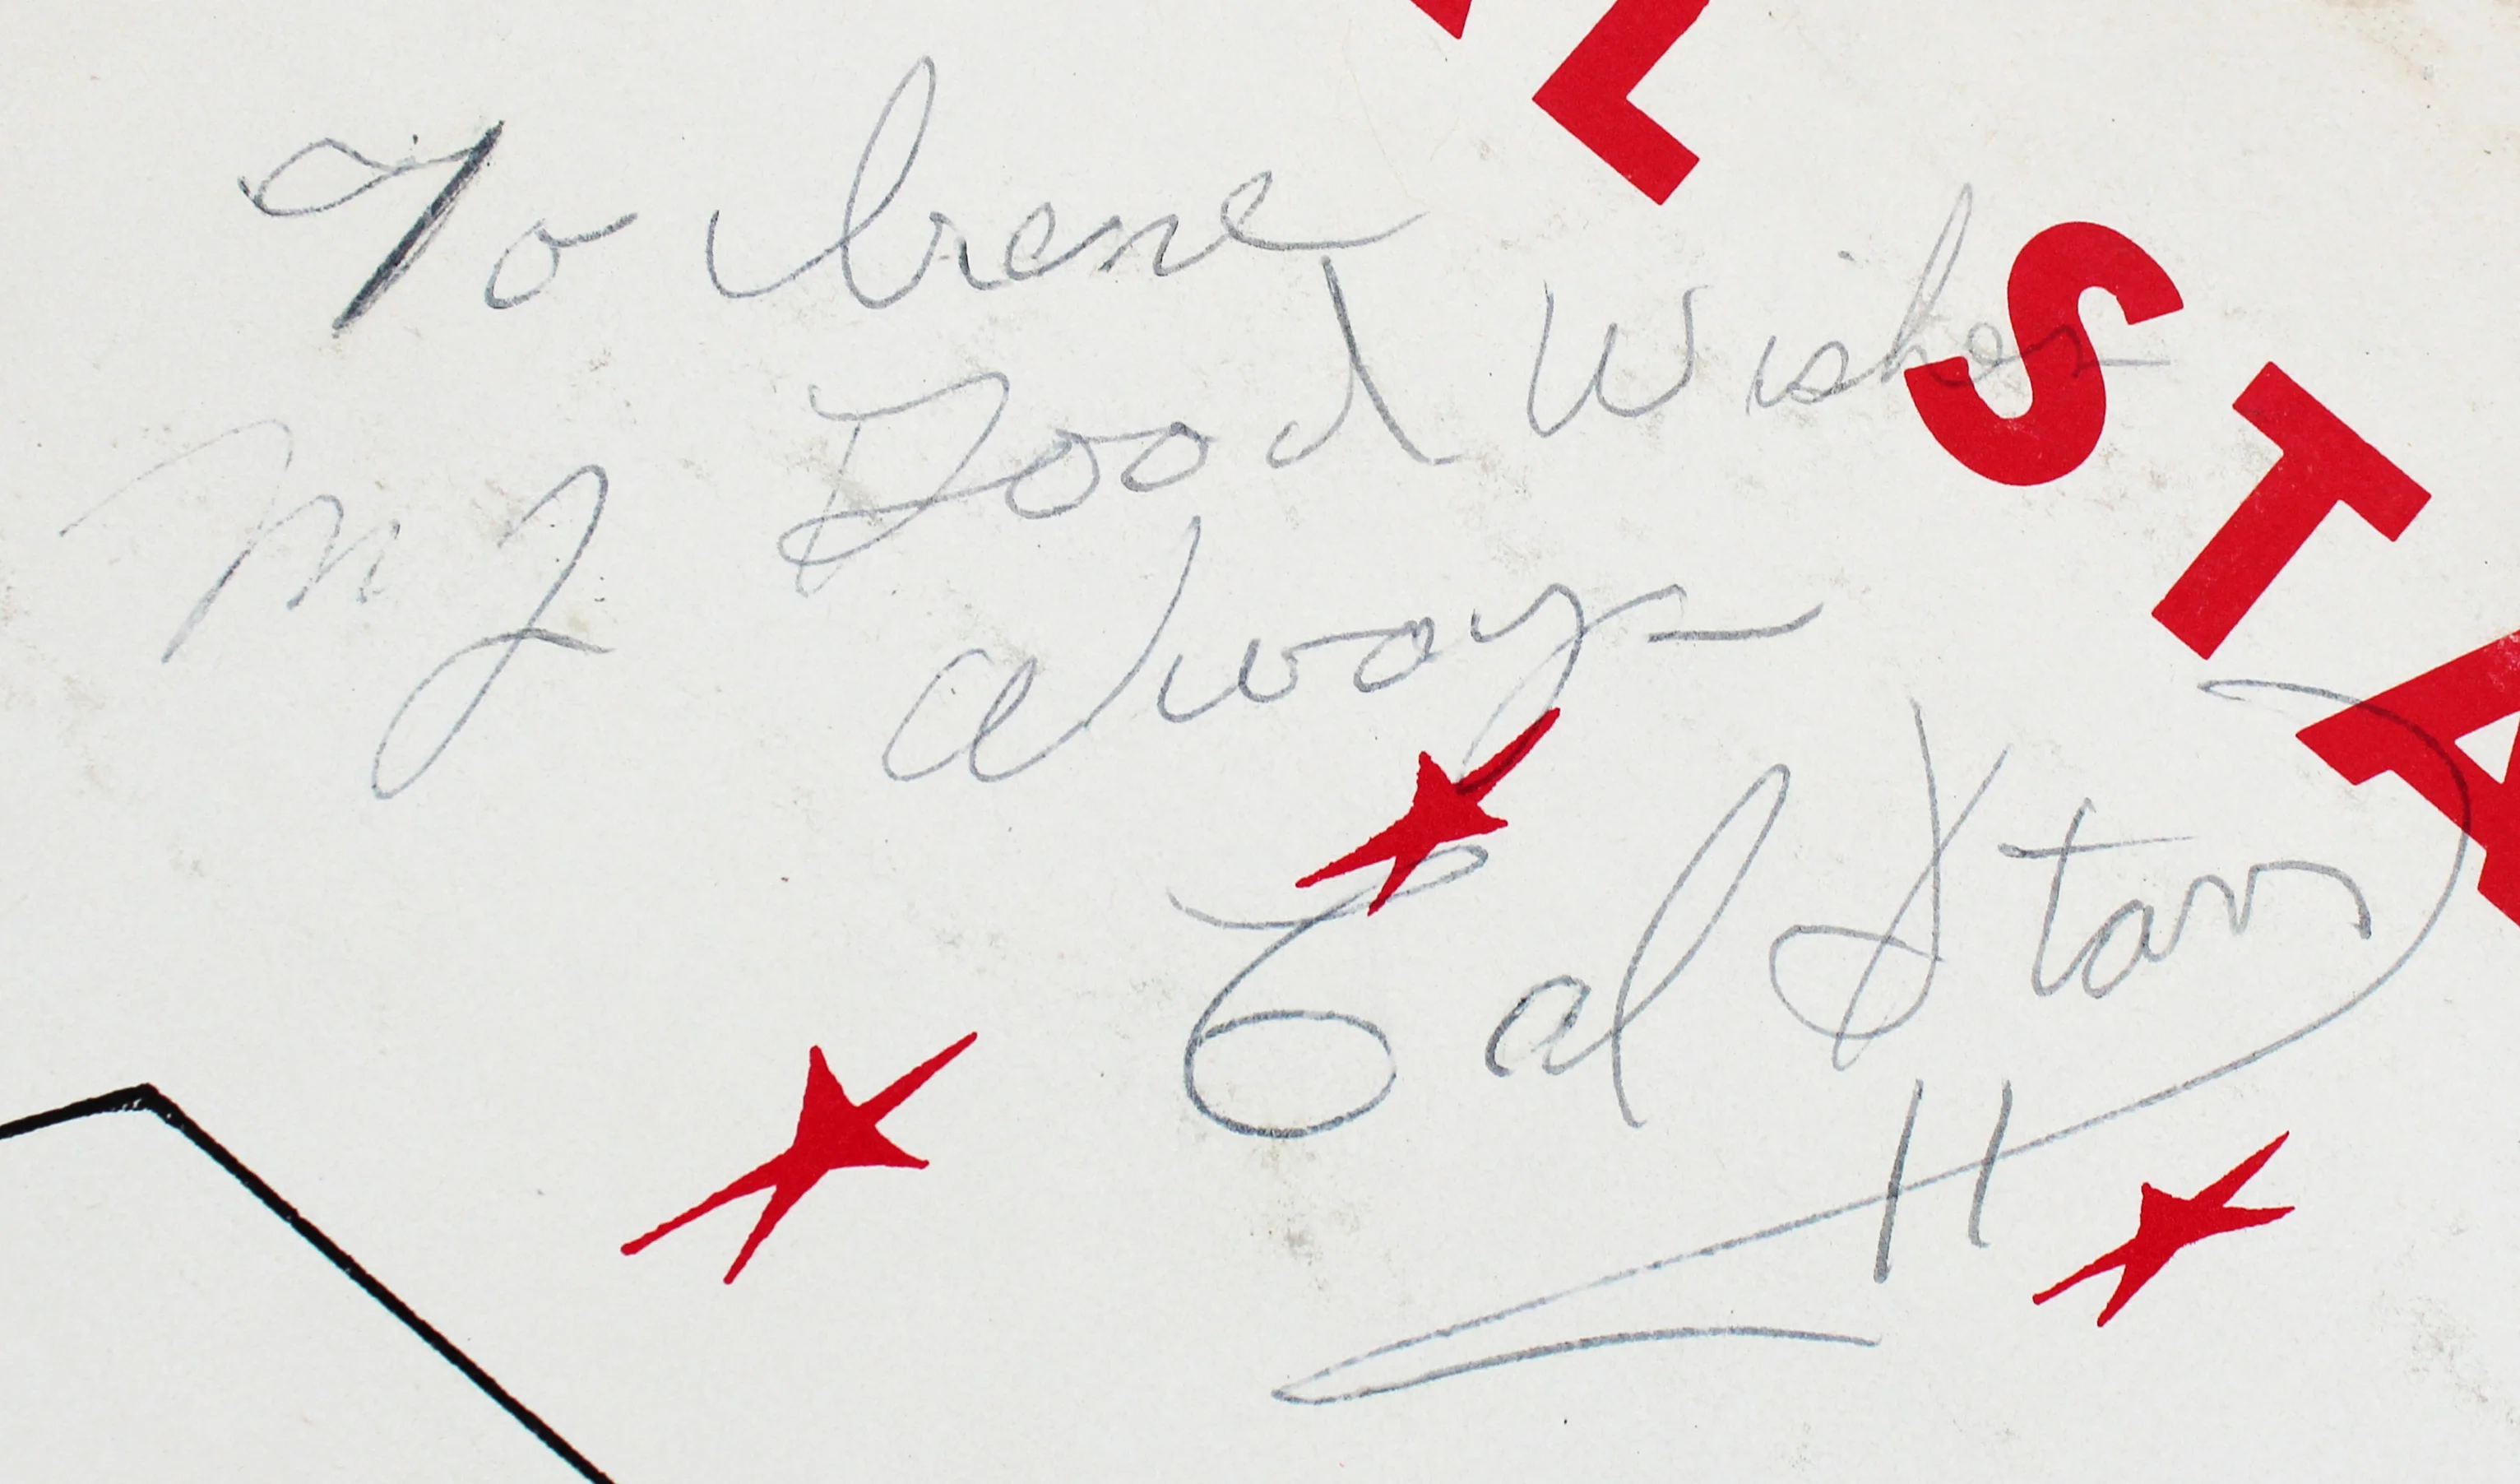 L STA
To Irene
My Good Wishes
always
Cal Starr